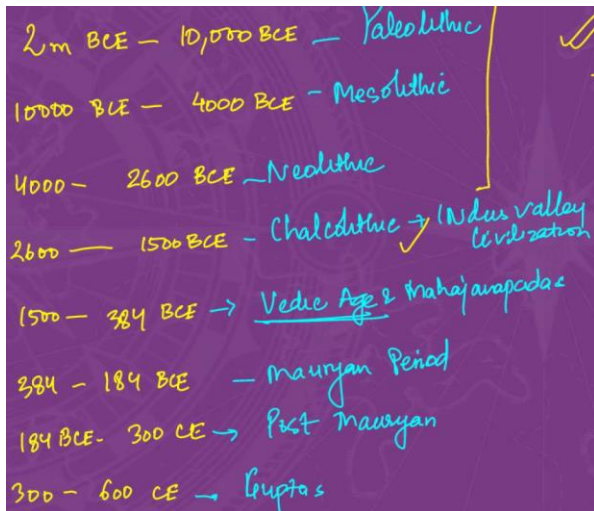 2m BCE - 10,000 BCE - Paleolithic
10000 BCE - 4000 BCE - Mesolithic
4000 - 2600 BCE - Neolithic
2600 - 1500 BCE - Chalcolithic → INdus valley
Civilization
1500 - 384 BCE → Vedic Age & Mahajanapadas
384 - 184 BCE - Mauryan Period
184 BCE - 300 CE → Post Mauryan
300 - 600 CE → Guptas